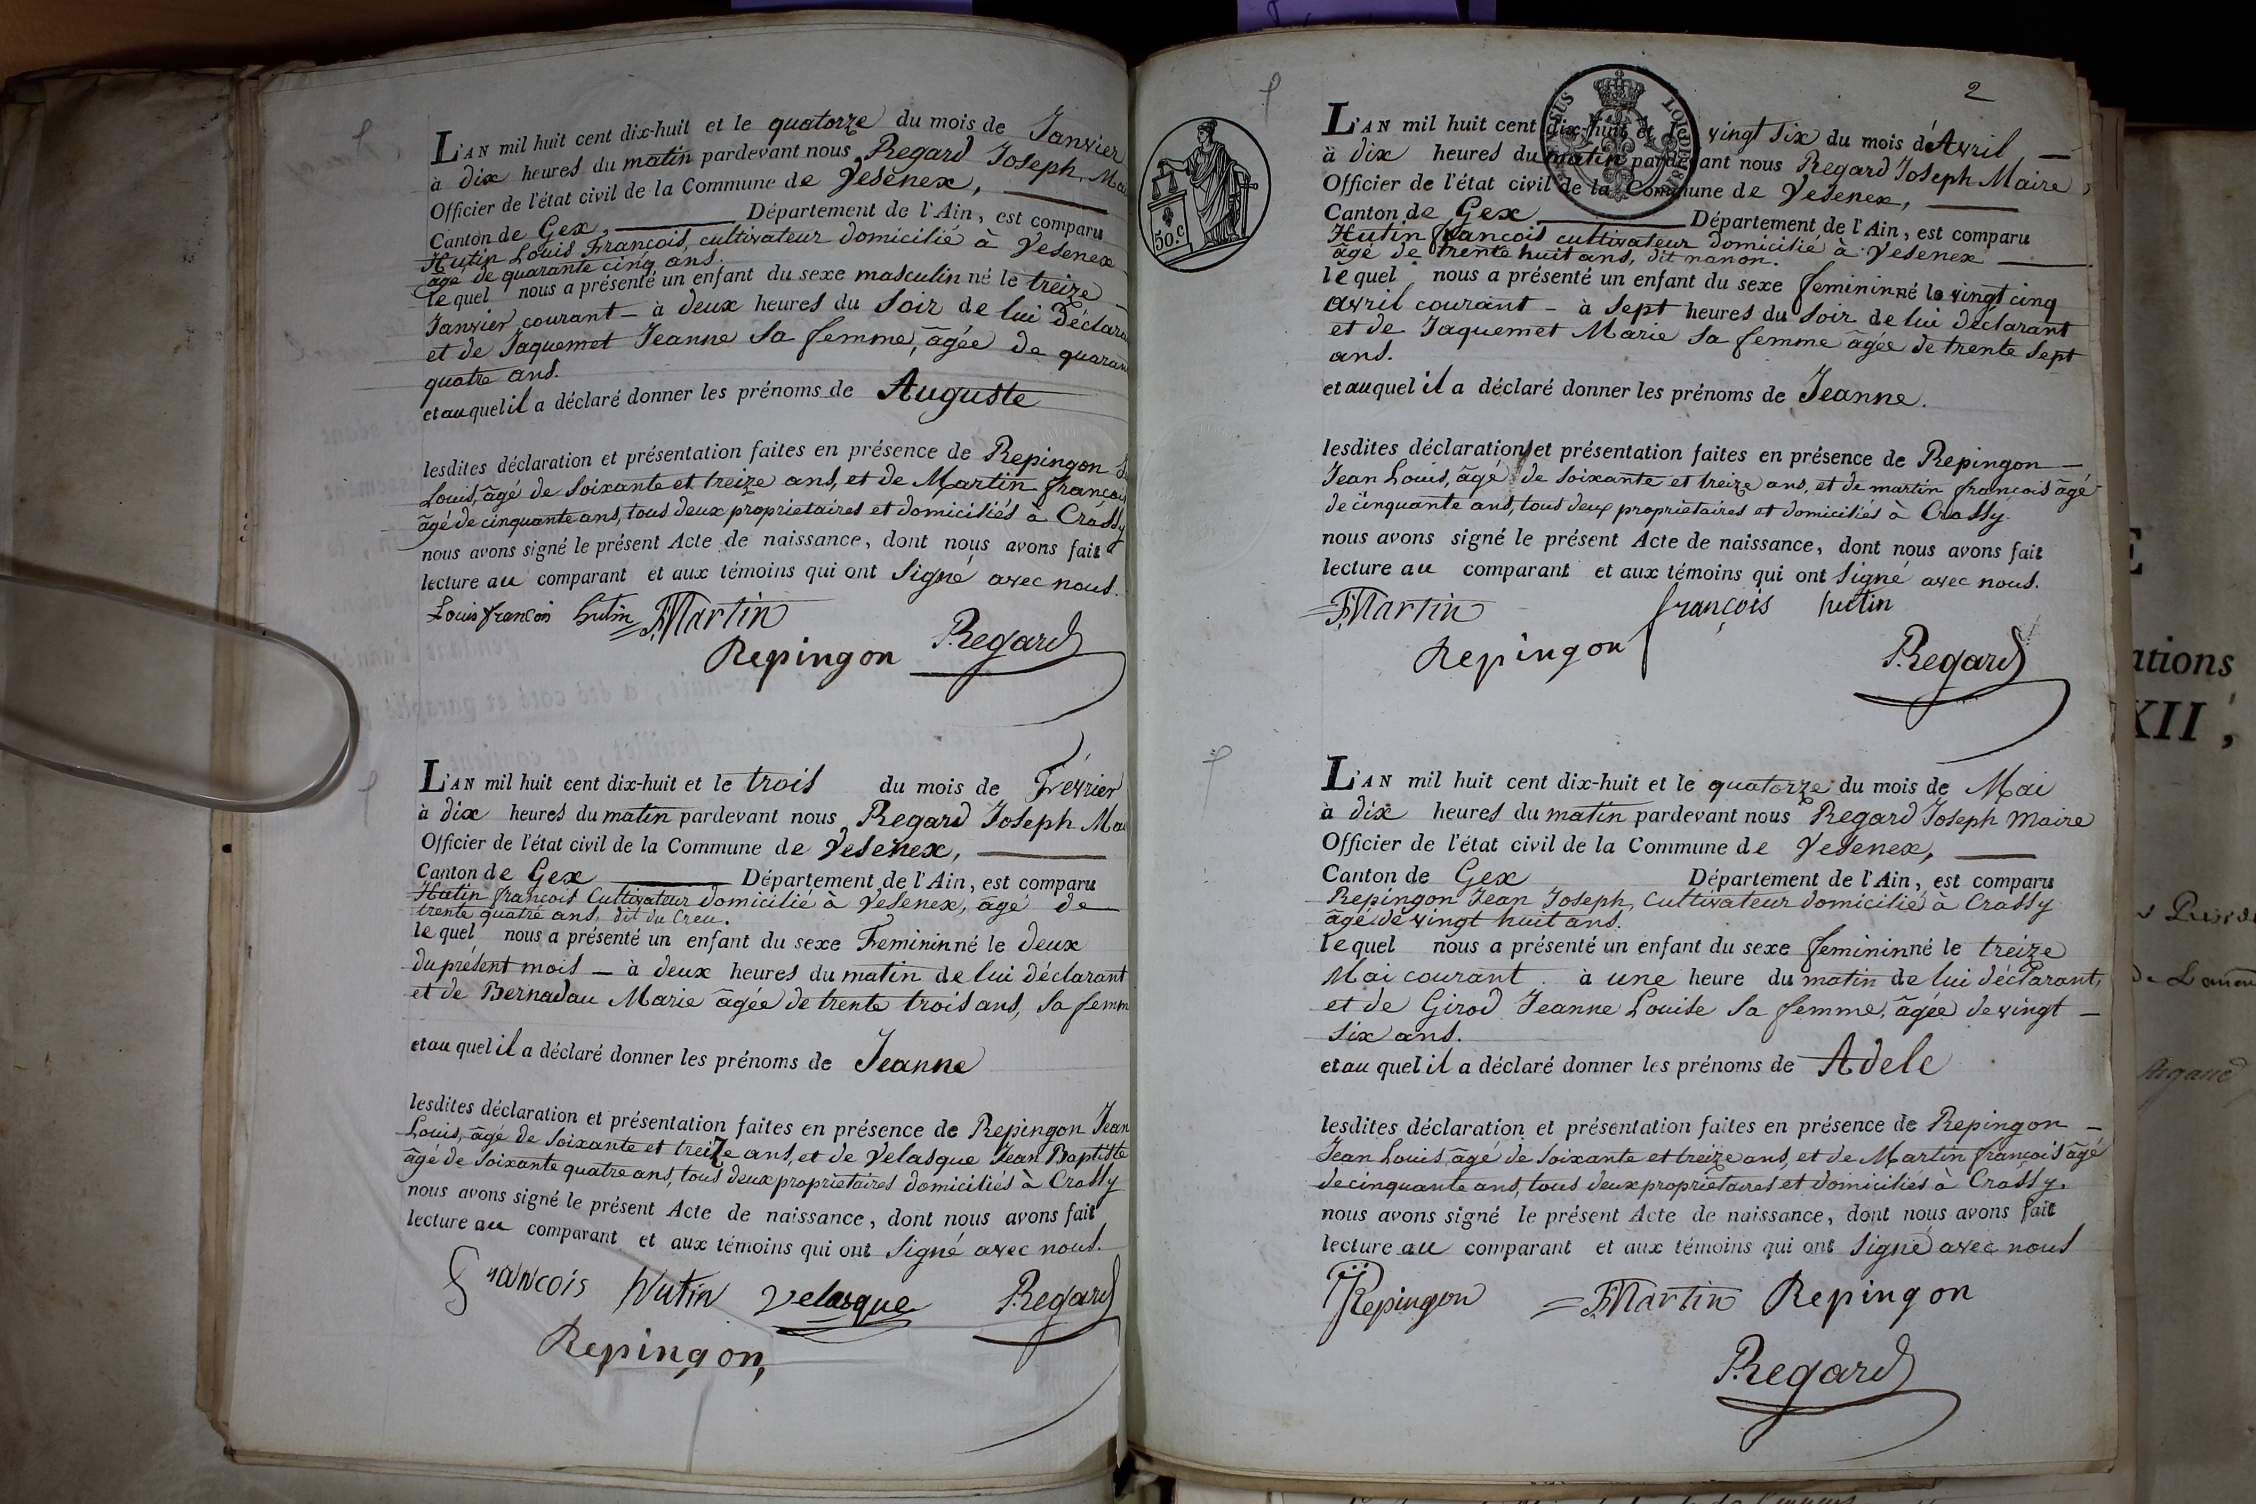 L'AN mil huit cent dix-huit et le quatorze du mois de Janvier
à dix heures du matin pardevant nous Regard Joseph Ma
Officier de l'état civil de la Commune de Vesenex,
Canton de Gex, Département de l'Ain, est comparu
Hutin Louis François, cultivateur domicilié à Vesenex
âgé de quarante cinq ans.
lequel nous a présenté un enfant du sexe masculin né le treize
Janvier courant à deux heures du Soir de lui déclara
et de Jaquemet Jeanne Sa femme, âgée de quaran
quatre ans.
et au quel il a déclaré donner les prénoms de Auguste
lesdites déclaration et présentation faites en présence de Repingon
Louis, âgé de soixante et treize ans, et de Martin françois
âgé de cinquante ans, tous deux proprietaires et domiciliés à Crassy
nous avons signé le présent Acte de naissance, dont nous avons fait
lecture au comparant et aux témoins qui ont Signé avec nous.
Louis françois hutin FMartin
Repingon Regard
L'AN mil huit cent dix-huit et le trois du mois de Février
à dix heures du matin pardevant nous Regard Joseph Ma
Officier de l'état civil de la Commune de Vesenex,
Canton de Gex Département de l'Ain, est comparu
Hutin françois Cultivateur domicilié à Vesenex, âgé de
trente quatre ans, dit du Creu.
lequel nous a présenté un enfant du sexe Feminin né le deux
du présent mois à deux heures du matin de lui déclarant
et de Bernadau Marie âgée de trente trois ans, Sa femm
et au quel il a déclaré donner les prénoms de Jeanne
lesdites déclaration et présentation faites en présence de Repingon Jean
Louis, âgé de Soixante et treize ans, et de Velasque Jean Baptiste
âgé de Soixante quatre ans, tous deux proprietaires domiciliés à Crassy
nous avons signé le présent Acte de naissance, dont nous avons fait
lecture au comparant et aux témoins qui ont Signé avec nous.
François hutin Velasque Regard
Repingon,
2
50.c
L'AN mil huit cent dix-huit et le vingt six du mois d'Avril
à dix heures du matin pardevant nous Regard Joseph Maire,
Officier de l'état civil de la Commune de Vesenex,
Canton de Gex Département de l'Ain, est comparu
Hutin françois cultivateur domicilié à Vesenex
âgé de trente huit ans, dit nanon.
lequel nous a présenté un enfant du sexe feminin né le vingt cinq
avril courant - à sept heures du Soir de lui déclarant
et de Jaquemet Marie sa femme âgée de trente Sept
ans.
et au quel il a déclaré donner les prénoms de Jeanne.
lesdites déclaration et présentation faites en présence de Repingon
Jean Louis, âgé de soixante et treize ans, et de martin françois âgé
de cinquante ans, tous deux proprietaires et domiciliés à Crassy.
nous avons signé le présent Acte de naissance, dont nous avons fait
lecture au comparant et aux témoins qui ont Signé avec nous.
FMartin françois hutin
Repingon Regard
L'AN mil huit cent dix-huit et le quatorze du mois de Mai
à dix heures du matin pardevant nous Regard Joseph maire
Officier de l'état civil de la Commune de Vesenex,
Canton de Gex Département de l'Ain, est comparu
Repingon Jean Joseph, Cultivateur domicilié à Crassy
âgé de vingt huit ans.
lequel nous a présenté un enfant du sexe feminin né le treize
Mai courant à une heure du matin de lui déclarant,
et de Girod Jeanne Louise Sa femme, âgée de vingt
Six ans.
et au quel il a déclaré donner les prénoms de Adele
lesdites déclaration et présentation faites en présence de Repingon
Jean Louis, âgé de Soixante et treize ans, et de Martin françois âgé
de cinquante ans, tous deux proprietaires et domiciliés à Crassy.
nous avons signé le présent Acte de naissance, dont nous avons fait
lecture au comparant et aux témoins qui ont Signé avec nous
JJRepingon FMartin Repingon
Regard
ations
XII,